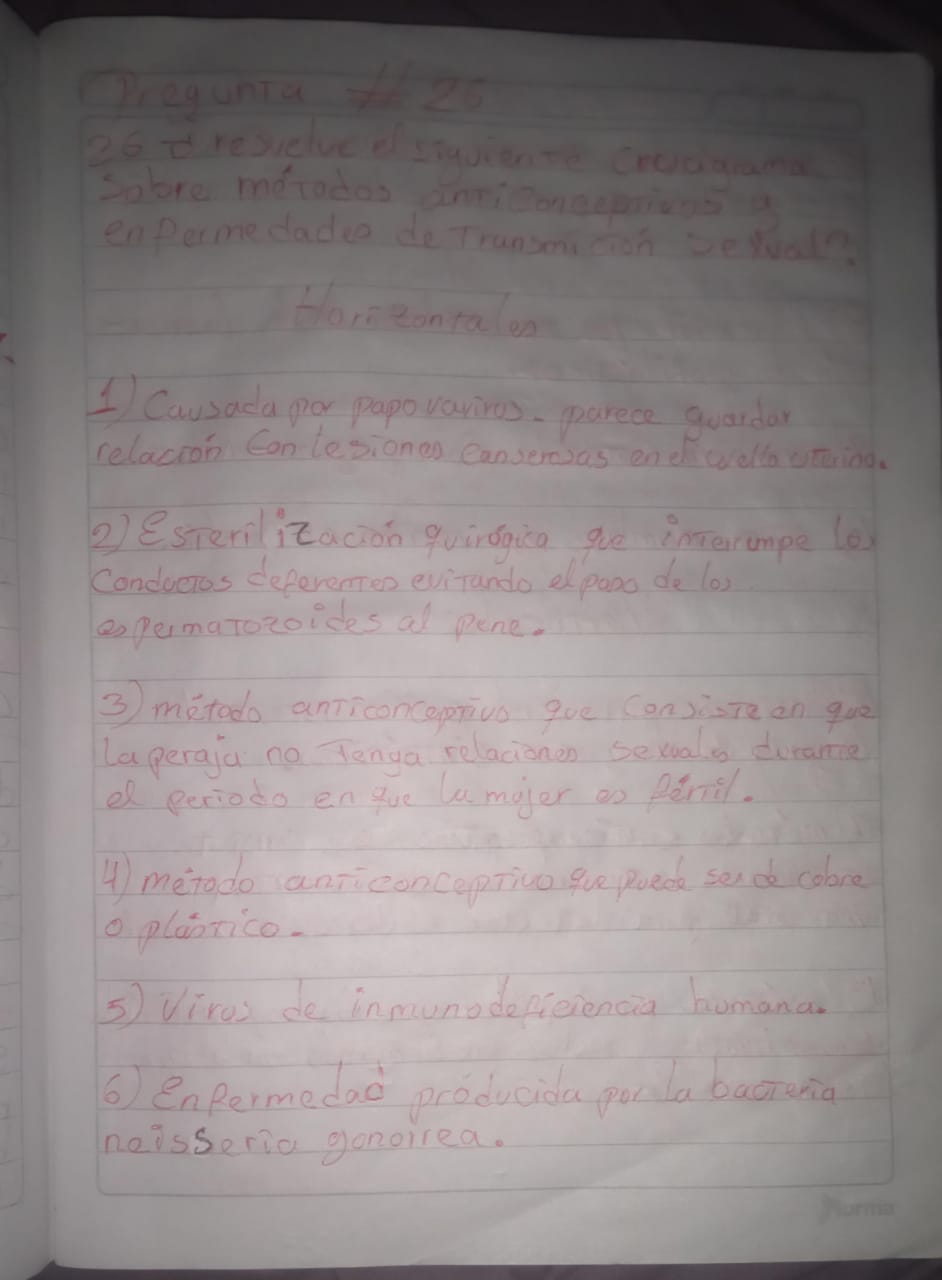 Pregunta # 26
26 d resuelve el siguiente Crucigrama
Sobre métodos anticonceptivos y
enfermedades de Transmición sexual?
Horizontales
1) Causada por papovavirus - parece guardar
relación Con lesiones canserosas en el cuello uterino.
2) Esterilización quirógica que interrumpe los
Conductos deferentes evitando el paso de los
espermatozoides al pene.
3) método anticonceptivo que Consiste en que
la peraja no Tenga relaciones sexuales durante
el periodo en que la mujer es fértil.
4) método anticonceptivo que puede ser de cobre
o plástico.
5) Virus de inmunodeficiencia humana.
6) Enfermedad producida por la bacteria
neisseria gonorrea.
Norma